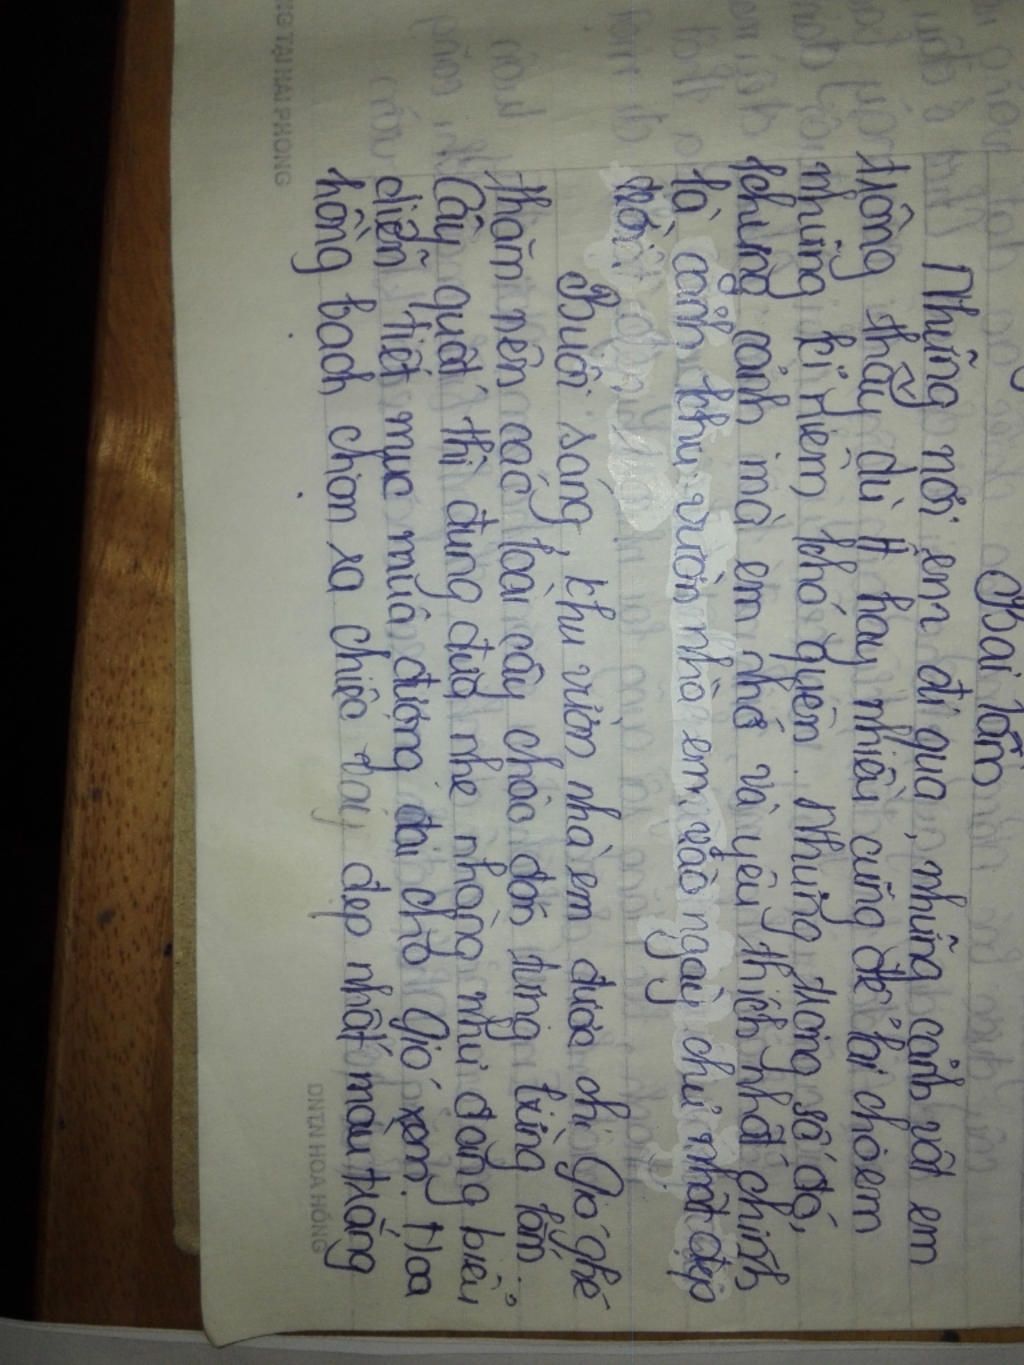 Bài làm
Những nơi em đi qua, những cảnh vật em
trông thấy dù ít hay nhiều cũng để lại cho em
những kỉ niệm khó quên. Nhưng trong số đó,
khung cảnh mà em nhớ và yêu thích nhất chính
là cảnh khu vườn nhà em vào ngày chủ nhật đẹp
trời.
Buổi sáng, khu vườn nhà em được chị Gió ghé
thăm nên các loài cây chào đón tưng bừng lắm.
Cây quất thì đung đưa nhẹ nhàng như đang biểu
diễn tiết mục múa đương đại cho Gió xem. Hoa
hồng bạch chọn ra chiếc váy đẹp nhất màu trắng
NG TẠI HẢI PHÒNG
DNTN HOA HỒNG